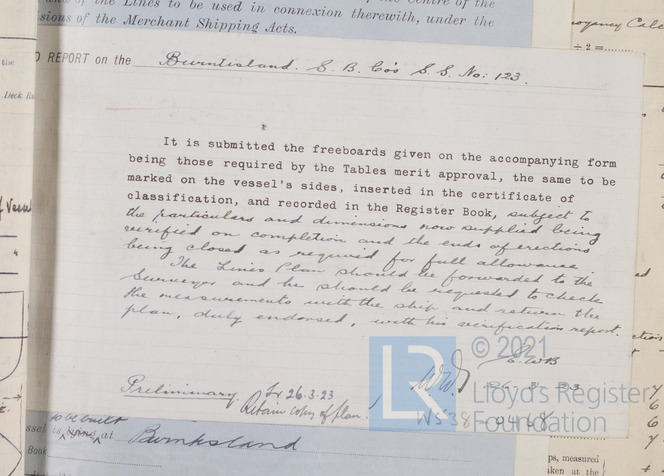 and of the Lines to be used in connexion therewith, under the
sions of the Merchant Shipping Acts.
oyancy Calc
÷ 2 =
D REPORT on the Burntisland. S. B. Co's S.S. No: 123.
Deck
It is submitted the freeboards given on the accompanying form
being those required by the Tables merit approval, the same to be
marked on the vessel's sides, inserted in the certificate of
classification, and recorded in the Register Book, subject to
the particulars and dimensions now supplied being
verified on completion and the ends of erections
being closed as required for full allowance.
The Lines Plan should be forwarded to the
Surveyor and he should be requested to check
the measurements with the ship and return the
plan, duly endorsed, with his verification report.
26.3.23
Preliminary
26.3.23
Retain copy of plan.
LR
© 2021
Lloyd's Register
Foundation
to be built
ssel is lying at Burntisland
Book
ps, measured
aken at the